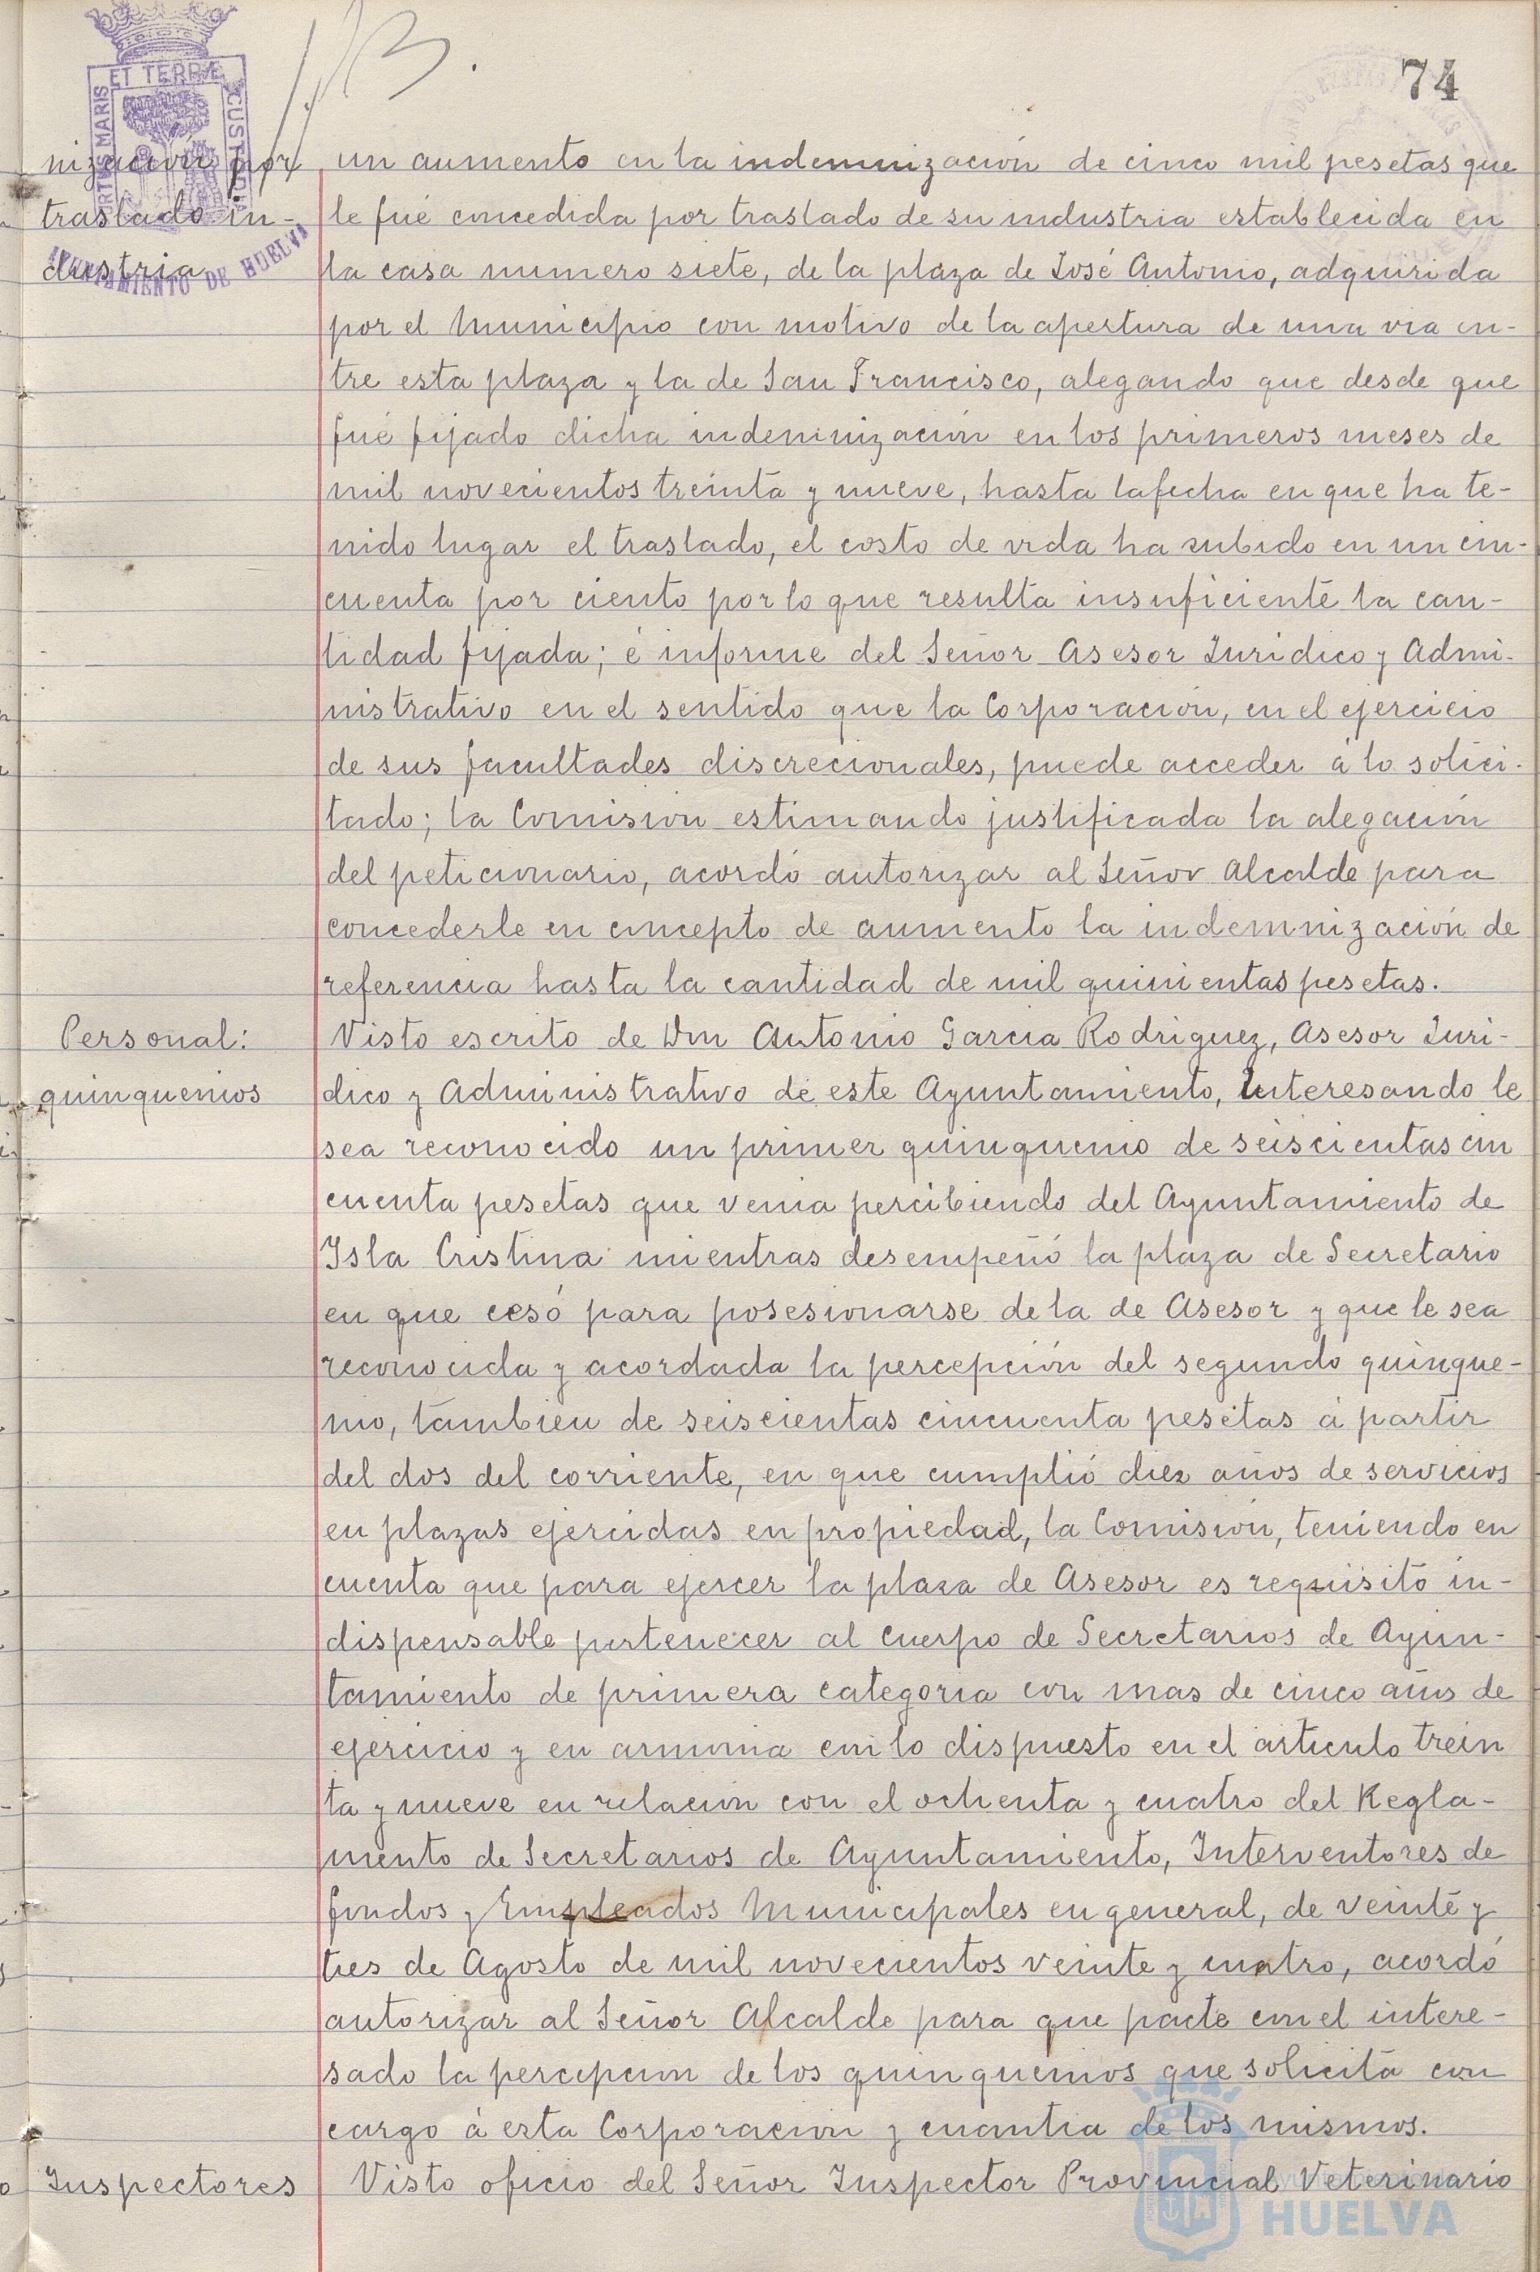 74
nización por
traslado in-
dustria
un aumento en la indemnización de cinco mil pesetas que
le fué concedida por traslado de su industria establecida en
la casa numero siete, de la plaza de José Antonio, adquirida
por el Municipio con motivo de la apertura de una via en-
tre esta plaza y la de San Francisco, alegando que desde que
fué fijado dicha indeminización en los primeros meses de
mil novecientos treinta y nueve, hasta la fecha en que ha te-
nido lugar el traslado, el costo de vida ha subido en un cin-
cuenta por ciento por lo que resulta insuficiente la can-
tidad fijada; é informe del Señor Asesor Juridico y Admi-
nistrativo en el sentido que la Corporación, en el ejercicio
de sus facultades discrecionales, puede acceder á lo solici-
tado; la Comision estimando justificada la alegación
del peticionario, acordó autorizar al Señor Alcalde para
concederle en concepto de aumento la indemnización de
referencia hasta la cantidad de mil quinientas pesetas.
Personal:
quinquenios
Visto escrito de Don Antonio Garcia Rodriguez, Asesor Juri-
dico y Administrativo de este Ayuntamiento, interesando le
sea reconocido un primer quinquenio de seiscientas cin
cuenta pesetas que venia percibiendo del Ayuntamiento de
Isla Cristina mientras desempeñó la plaza de Secretario
en que cesó para posesionarse de la de Asesor y que le sea
reconocida y acordada la percepción del segundo quinque-
nio, tambien de seiscientas cincuenta pesetas á partir
del dos del corriente, en que cumplió diez años de servicios
en plazas ejercidas en propiedad, la Comisión, teniendo en
cuenta que para ejercer la plaza de Asesor es requisito in-
dispensable pertenecer al Cuerpo de Secretarios de Ayun-
tamiento de primera categoria con mas de cinco años de
ejercicio y en armonia con lo dispuesto en el articulo trein
ta y nueve en relacion con el ochenta y cuatro del Regla-
mento de Secretarios de Ayuntamiento, Interventores de
fondos y Empleados Municipales en general, de veinte y
tres de Agosto de mil novecientos veinte y cuatro, acordó
autorizar al Señor Alcalde para que pacte con el intere-
sado la percepcion de los quinquenios que solicita con
cargo á esta Corporacion y cuantia de los mismos.
Inspectores
Visto oficio del Señor Inspector Provincial Veterinario
ET TERRÆ CUSTODIA
PORTUS MARIS
AYUNTAMIENTO DE HUELVA
HUELVA